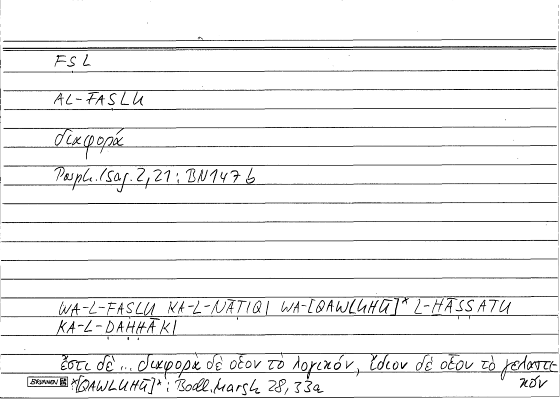 FṢL
AL-FAṢLU
διαφορά
Porph. Isag. 2, 21 : BN 147 b
WA-L-FAṢLU KA-L-NĀṬIQI WA-[QAWLUHŪ]* L-ḪĀṢṢATU
KA-L-ḌAḤḤĀKI
ἔστι δὲ ... διαφορὰ δὲ οἷον τὸ λογικόν, ἴδιον δὲ οἷον τὸ γελαστι-
κόν
BRUNNEN *[QAWLUHŪ]* : Bodl. Marsh 28, 33a